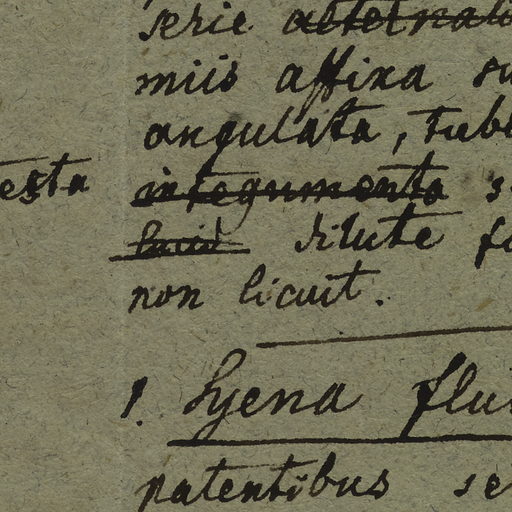 serie alternati
miis affixa su
angulata, tube
testa integumento s
lucid dilute fu
non licuit.
1. Syena flui
patentibus se